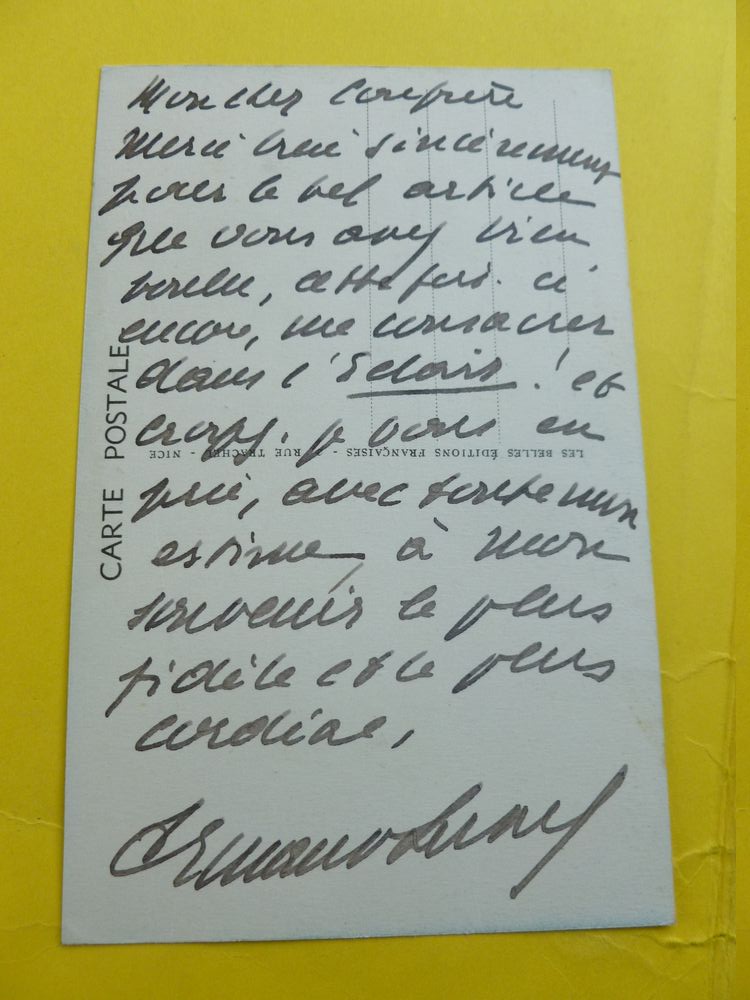 Mon cher Confrère
Merci bien sincèrement
pour le bel article
que vous avez bien
voulu, cette fois-ci
encore, me consacrer
dans l'Eclair ! et
croyez, je vous en
prie, avec toute mon
estime, à mon
souvenir le plus
fidèle et le plus
cordial,
CARTE POSTALE
LES BELLES ÉDITIONS FRANÇAISES - RUE TRACHEL - NICE